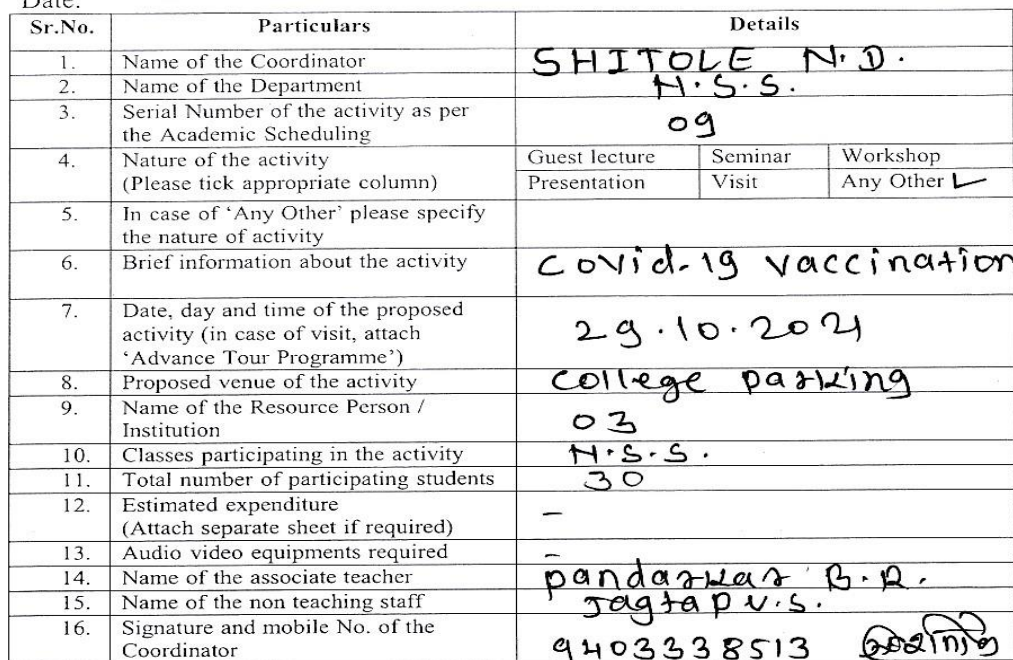 Date:
Sr.No. Particulars Details
1. Name of the Coordinator SHITOLE N.D.
2. Name of the Department N.S.S.
3. Serial Number of the activity as per
the Academic Scheduling 09
4. Nature of the activity Guest lecture Seminar Workshop
(Please tick appropriate column) Presentation Visit Any Other
5. In case of 'Any Other' please specify
the nature of activity
6. Brief information about the activity Covid-19 vaccination
7. Date, day and time of the proposed
activity (in case of visit, attach 29.10.2021
'Advance Tour Programme')
8. Proposed venue of the activity college parking
9. Name of the Resource Person /
Institution 03
10. Classes participating in the activity N.S.S.
11. Total number of participating students 30
12. Estimated expenditure
(Attach separate sheet if required) -
13. Audio video equipments required -
14. Name of the associate teacher pandarkar B.R.
15. Name of the non teaching staff Jagtap V.S.
16. Signature and mobile No. of the
Coordinator 9403338513